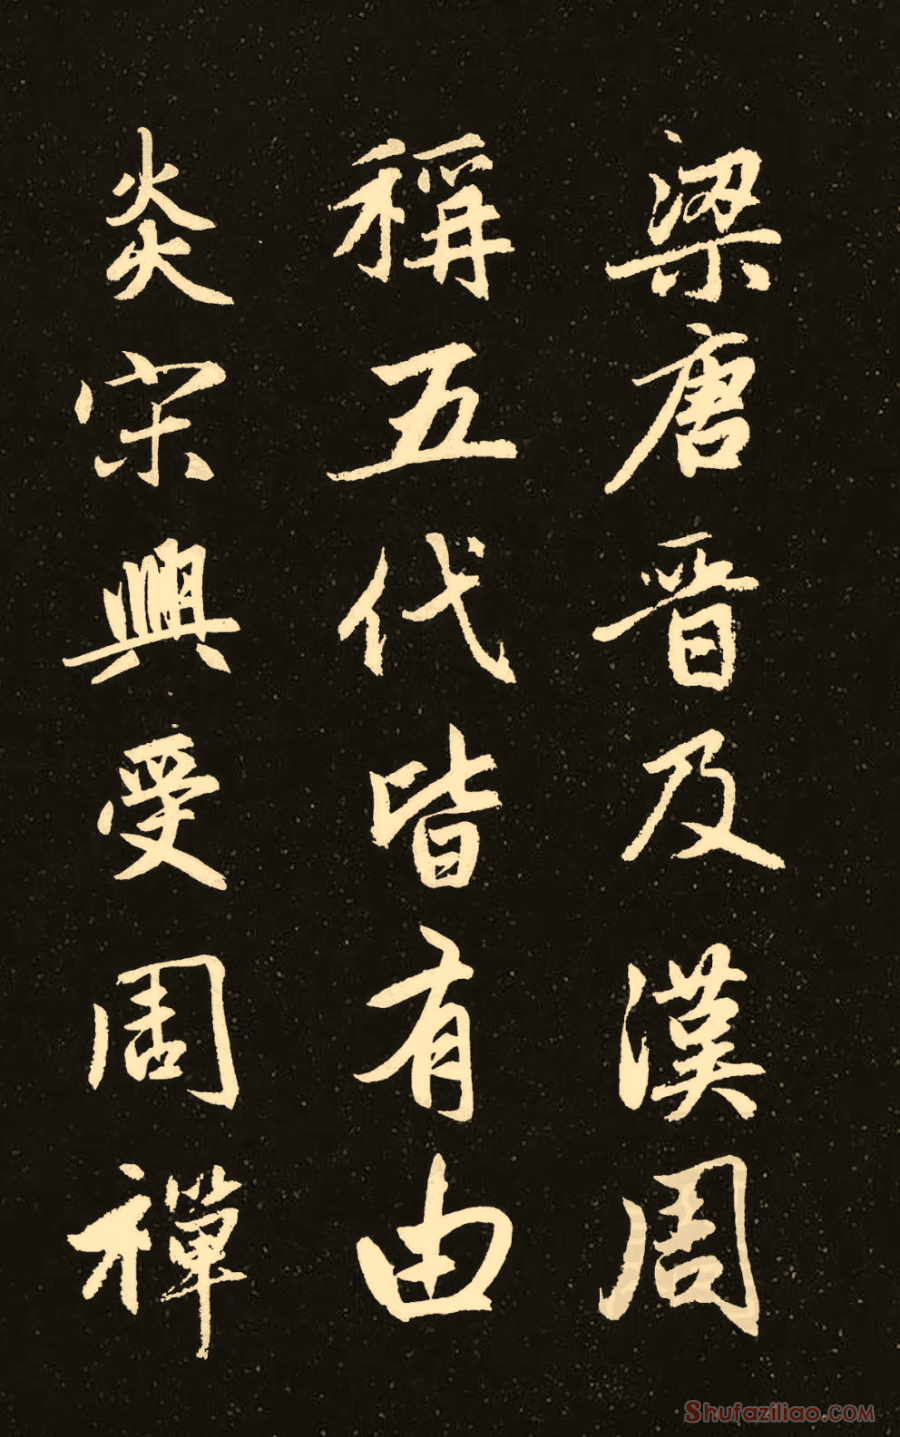 梁唐晋及漢周
稱五代皆有由
炎宋興受周禪
Shufaziliao.COM